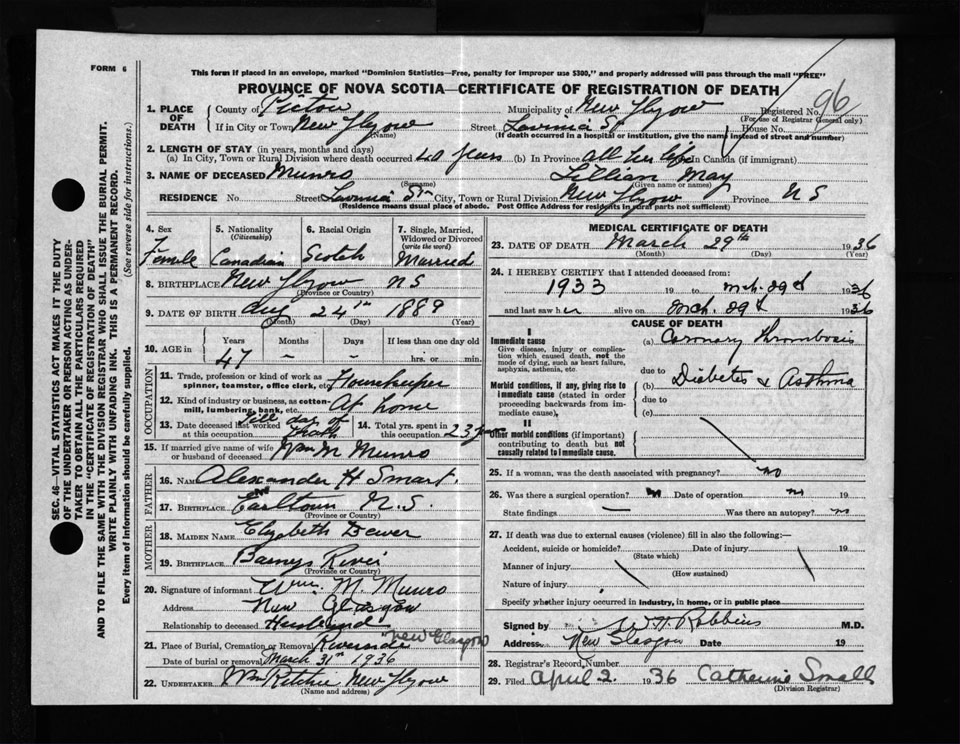 FORM 6
This form if placed in an envelope, marked "Dominion Statistics—Free, penalty for improper use $300," and properly addressed will pass through the mail "FREE"
PROVINCE OF NOVA SCOTIA—CERTIFICATE OF REGISTRATION OF DEATH
96
1. PLACE OF DEATH County of Pictou Municipality of New Glasgow Registered No.
(For use of Registrar General only)
If in City or Town New Glasgow Street Lavinia St House No.
(If death occurred in a hospital or institution, give the name instead of street and number)
2. LENGTH OF STAY (in years, months and days)
(a) In City, Town or Rural Division where death occurred 40 years (b) In Province all her life In Canada (if immigrant)
3. NAME OF DECEASED Munro Lillian May
(Surname) (Given name or names)
RESIDENCE No. Street Lavinia St City, Town or Rural Division New Glasgow Province N S
(Residence means usual place of abode. Post Office Address for residents in rural parts not sufficient)
4. Sex 5. Nationality (Citizenship) 6. Racial Origin 7. Single, Married, Widowed or Divorced (write the word)
Female Canadian Scotch Married
8. BIRTHPLACE New Glasgow N S
(Province or Country)
9. DATE OF BIRTH Aug 24th 1889
(Month) (Day) (Year)
10. AGE in Years Months Days If less than one day old
47 – – hrs. or min.
OCCUPATION
11. Trade, profession or kind of work as spinner, teamster, office clerk, etc. Housekeeper
12. Kind of industry or business, as cotton-mill, lumbering, bank, etc. At home
13. Date deceased last worked at this occupation till day of death 14. Total yrs. spent in this occupation 23 years
15. If married give name of wife or husband of deceased Wm M Munro
FATHER
16. NAME Alexander H Smart.
17. BIRTHPLACE Earltown N.S.
(Province or Country)
MOTHER
18. MAIDEN NAME Elizabeth Dewer
19. BIRTHPLACE Barneys River
(Province or Country)
20. Signature of informant Wm. M. Munro
Address New Glasgow
Relationship to deceased Husband
21. Place of Burial, Cremation or Removal Riverside "New Glasgow
Date of burial or removal March 31st 1936
22. UNDERTAKER Wm Ritchie New Glasgow
(Name and address)
MEDICAL CERTIFICATE OF DEATH
23. DATE OF DEATH March 29th 1936
(Month) (Day) (Year)
24. I HEREBY CERTIFY that I attended deceased from:
1933 19 to Mch. 29th 1936
and last saw her alive on Mch. 29th 1936
CAUSE OF DEATH
I
Immediate cause
Give disease, injury or complication which caused death, not the mode of dying, such as heart failure, asphyxia, asthenia, etc.
(a) Coronary Thrombosis
due to
Morbid conditions, if any, giving rise to immediate cause (stated in order proceeding backwards from immediate cause).
(b) Diabetes & Asthma
due to
(c)
II
Other morbid conditions (if important) contributing to death but not causally related to immediate cause.
25. If a woman, was the death associated with pregnancy? no
26. Was there a surgical operation? no Date of operation no 19
State findings — Was there an autopsy? no
27. If death was due to external causes (violence) fill in also the following:—
Accident, suicide or homicide? Date of injury 19
(State which)
Manner of injury
(How sustained)
Nature of injury
Specify whether injury occurred in industry, in home, or in public place
Signed by Robbins M.D.
Address New Glasgow Date 19
28. Registrar's Record Number
29. Filed April 2. 1936 Catherine Small
(Division Registrar)
SEC. 46—VITAL STATISTICS ACT MAKES IT THE DUTY
OF THE UNDERTAKER OR PERSON ACTING AS UNDER-
TAKER TO OBTAIN ALL THE PARTICULARS REQUIRED
IN THE "CERTIFICATE OF REGISTRATION OF DEATH"
AND TO FILE THE SAME WITH THE DIVISION REGISTRAR WHO SHALL ISSUE THE BURIAL PERMIT.
WRITE PLAINLY WITH UNFADING INK. THIS IS A PERMANENT RECORD.
Every item of Information should be carefully supplied. (See reverse side for instructions.)